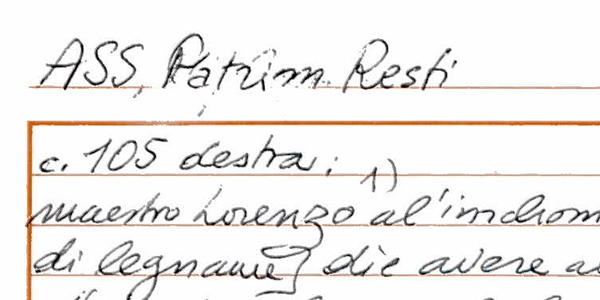 ASS, Patrim Resti
c. 105 destra:
1)
maestro Lorenzo al'indrom
di legname] die avere a